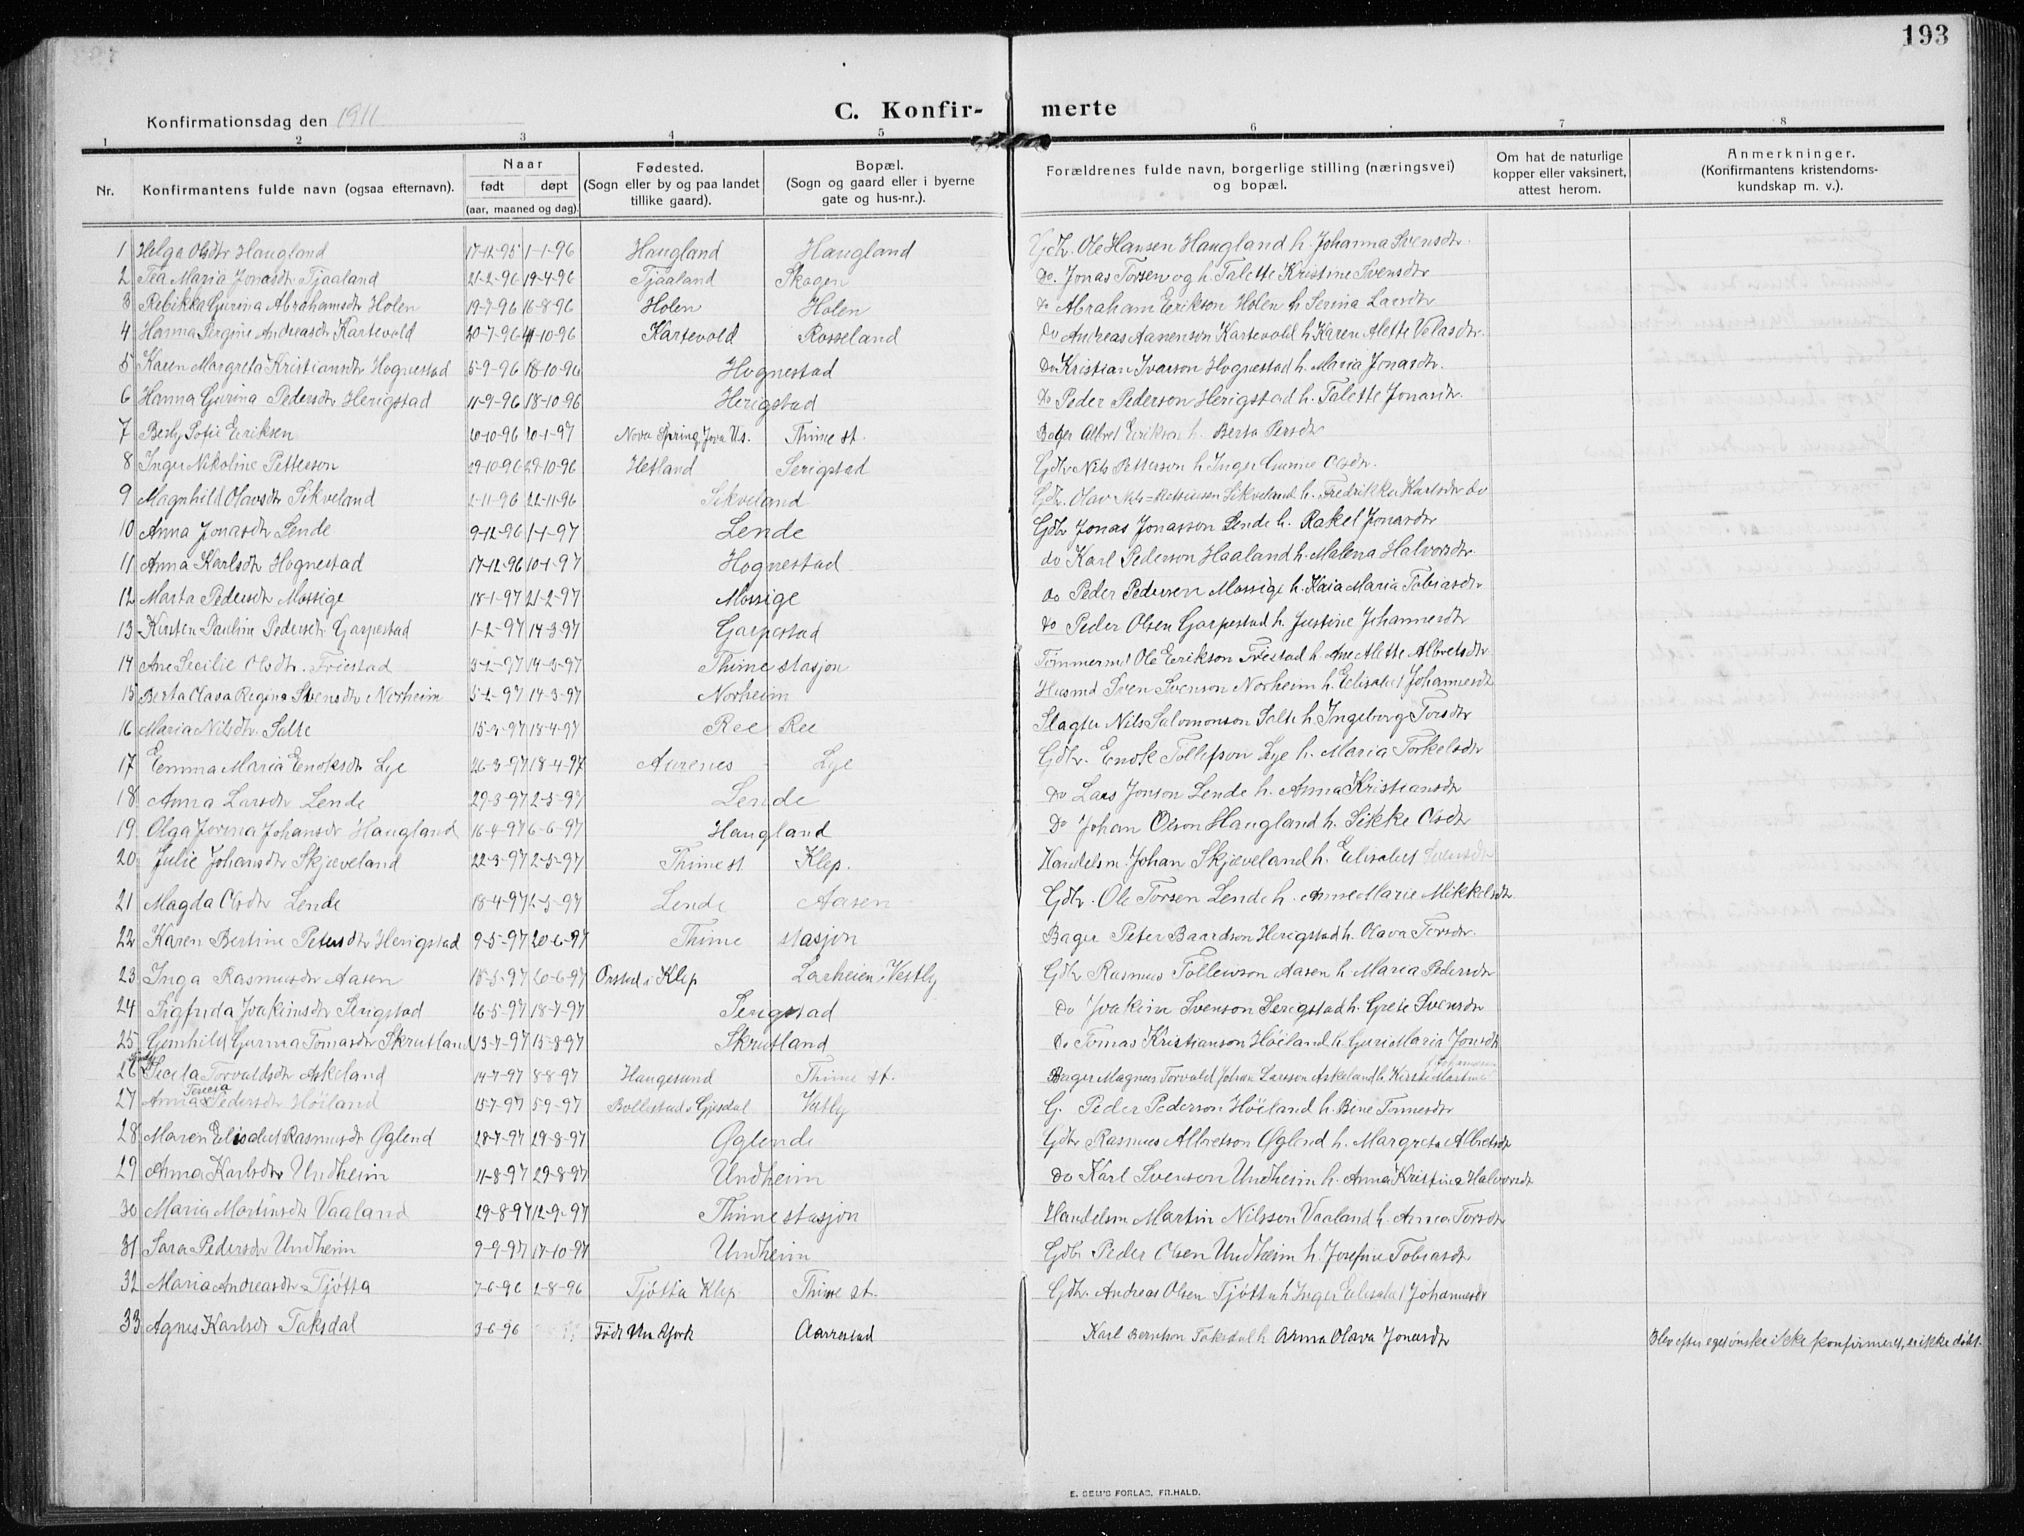 193
C. Konfir- merte
Konfirmationsdag den 1911
1 2 3 4 5 6 7 8
Nr. Konfirmantens fulde navn (ogsaa efternavn). Naar født døpt (aar, maaned og dag). Fødested. (Sogn eller by og paa landet tillike gaard). Bopæl. (Sogn og gaard eller i byerne gate og hus-nr.). Forældrenes fulde navn, borgerlige stilling (næringsvei) og bopæl. Om hat de naturlige kopper eller vaksinert, attest herom. Anmerkninger. (Konfirmantens kristendoms- kundskap m. v.).
1 Helga Olsdtr Haugland 17-12-95 1-1-96 Haugland Haugland Gdbr. Ole Hansen Haugland h. Johanna Svensdtr.
2 Tea Maria Jonasdtr Tjaaland 21-2-96 19-4-96 Tjaaland Skogen Do. Jonas Torsen og h. Talette Kristine Svensdtr
3 Rebikka Gurina Abrahamsdtr Holen 19-7-96 16-8-96 Holen Holen do Abraham Erikson Holen h Serina Larsdtr
4 Hanna Bergine Andreasdtr Kartevold 20-7-96 4-10-96 Kartevold Rosseland Do Andreas Aanenson Kartevold h Karen Alette Velasdtr.
5 Karen Margreta Kristiansdtr Hognestad 5-9-96 18-10-96 Hognestad Do Kristian Iverson Hognestad h. Maria Jonasdtr.
6 Hanna Gurina Pedersdtr Herigstad 11-9-96 18-10-96 Herigstad do Peder Pederson Herigstad h. Talette Jonasdtr.
7 Berly Sofie Eriksen 20-10-96 10-1-97 Nova Spring, Jova Us. Thime st. Bager Albret Erikson h. Berta Persdtr
8 Inger Nikoline Petterson 29-10-96 29-10-96 Hetland Serigstad Gdbr Nils Petterson h Inger Gurine Olsdtr.
9 Magnhild Olavsdtr Sikveland 2-11-96 22-11-96 Sikveland Gdbr. Olav Nils Sikveland h. Fredrikke Karlsdtr do
10 Anna Jonasdtr Lende 9-12-96 1-1-97 Lende Gdbr Jonas Jonasson Lende h. Rakel Jonasdtr
11 Anna Karlsdtr Hognestad 17-12-96 10-1-97 Hognestad do Karl Pederson Haaland h. Malena Halvorsdtr.
12 Marta Pedersdtr Mossige 18-1-97 21-2-97 Mossige do Peder Pedersen Mossige h. Kaia Maria Tobiasdtr
13 Kirsten Pauline Pedersdtr Garpestad 1-2-97 14-3-97 Garpestad do Peder Olsen Garpestad h. Justine Johannesdtr
14 Ane Secilie Olsdtr. Friestad 3-2-97 14-3-97 Thime stasjon Tømmermd Ole Erikson Friestad h. Ane Alette Albretsdtr
15 Berta Olava Regina Svensdtr Norheim 5-2-97 14-3-97 Norheim Husmd Sven Svenson Norheim h. Elisabet Johannesdtr
16 Maria Nilsdtr. Salte 15-3-97 18-4-97 Ree Ree Slagter Nils Salomonson Salte h. Ingeborg Torsdtr
17 Emma Maria Enoksdtr Lye 26-3-97 18-4-97 Aurenes Lye Gdbr. Enok Tollefson Lye h. Maria Torkelsdtr
18 Anna Larsdtr Lende 29-3-97 2-5-97 Lende do Lars Jonson Lende h. Anna Kristiansdtr
19 Olga Jorina Johansdtr Haugland 16-4-97 6-6-97 Haugland Do Johan Olson Haugland h. Sikke Olsdtr
20 Julie Johansdtr Skjæveland 22-3-97 2-5-97 Thime st Klep. Handelsm. Johan Skjæveland h. Elisabet
21 Magda Olsdtr Lende 18-4-97 2-5-97 Lende Aasen Gdbr. Ole Torsen Lende h. Anne Marie Mikkelsdtr.
22 Karen Bertine Petersdtr Herigstad 9-5-97 20-6-97 Thime stasjon Bager Peter Baardson Herigstad h. Olava Torsdtr.
23 Inga Rasmusdtr Aasen 15-5-97 20-6-97 Orstad i Klep Larheien, Vestly Gdbr Rasmus Tollewson Aasen h. Maria Pedersdtr
24 Sigfrida Joakimsdtr Serigstad 26-5-97 18-7-97 Serigstad Do Joakim Svenson Serigstad h. Grete Svensdtr
25 Gunhild Gurina Tomasdtr Skrutland 13-7-97 15-8-97 Skrutland Do Tomas Kristianson Høiland h. Guri Maria Jonsdtr
26 Torvaldsdtr Askeland 14-7-97 8-8-97 Haugesund Thime st. Bager Magnus Torvald Johan Larsson Askeland h. Kirsti Martine
27 Anna Teresia Pedersdtr Høiland 15-7-97 5-9-97 Bollestad i Gjesdal Vestly G. Peder Pederson Høiland h. Bine Tomesdtr
28 Maren Elisabet Rasmusdtr Øglend 28-7-97 29-8-97 Øglende Gdbr Rasmus Albretson Øglend h. Margreta Albretsdtr
29 Anna Karlsdtr Undheim 11-8-97 29-8-97 Undheim Do Karl Svenson Undheim h. Anna Kristina Halvorsdtr
30 Maria Martinsdtr Vaaland 29-8-97 12-9-97 Thime stasjon Handelsm Martin Nilsson Vaaland h. Anna Torsdtr
31 Sara Pedersdtr Undheim 9-9-97 17-10-97 Undheim Gdbr Peder Olsen Undheim h. Josefine Tobiasdtr
32 Maria Andreasdtr Tjøtta 7-6-96 2-8-96 Tjøtta Klep. Thime st. Gdbr. Andreas Olsen Tjøtta h Inger Elisabet Johannesdr
33 Agnes Karlsdr Taksdal 3-6-96 Født Nu York Aarrestad Karl Bernson Taksdal h Anna Olava Jonasdtr Blev efter eget ønske ikke konfirmeret, er ikke døbt.
E. SEM'S FORLAG, FR.HALD.